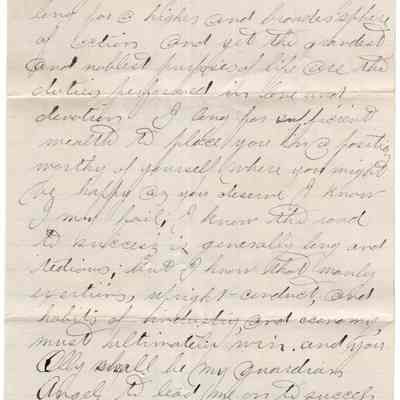 long for a higher and broader sphere
of action and yet the grandest
and noblest purposes of life are the
duties performed in love and
devotion I long for sufficient
wealth to place you in a position
worthy of yourself where you might
be happy as you deserve I know
I may fail, I know the road
to success is generally long and
tedious; but I know that manly
exertions, upright conduct, and
habits of industry and economy,
must ultimately win. and you
Ally shall be my guardian
Angel to lead me on to success